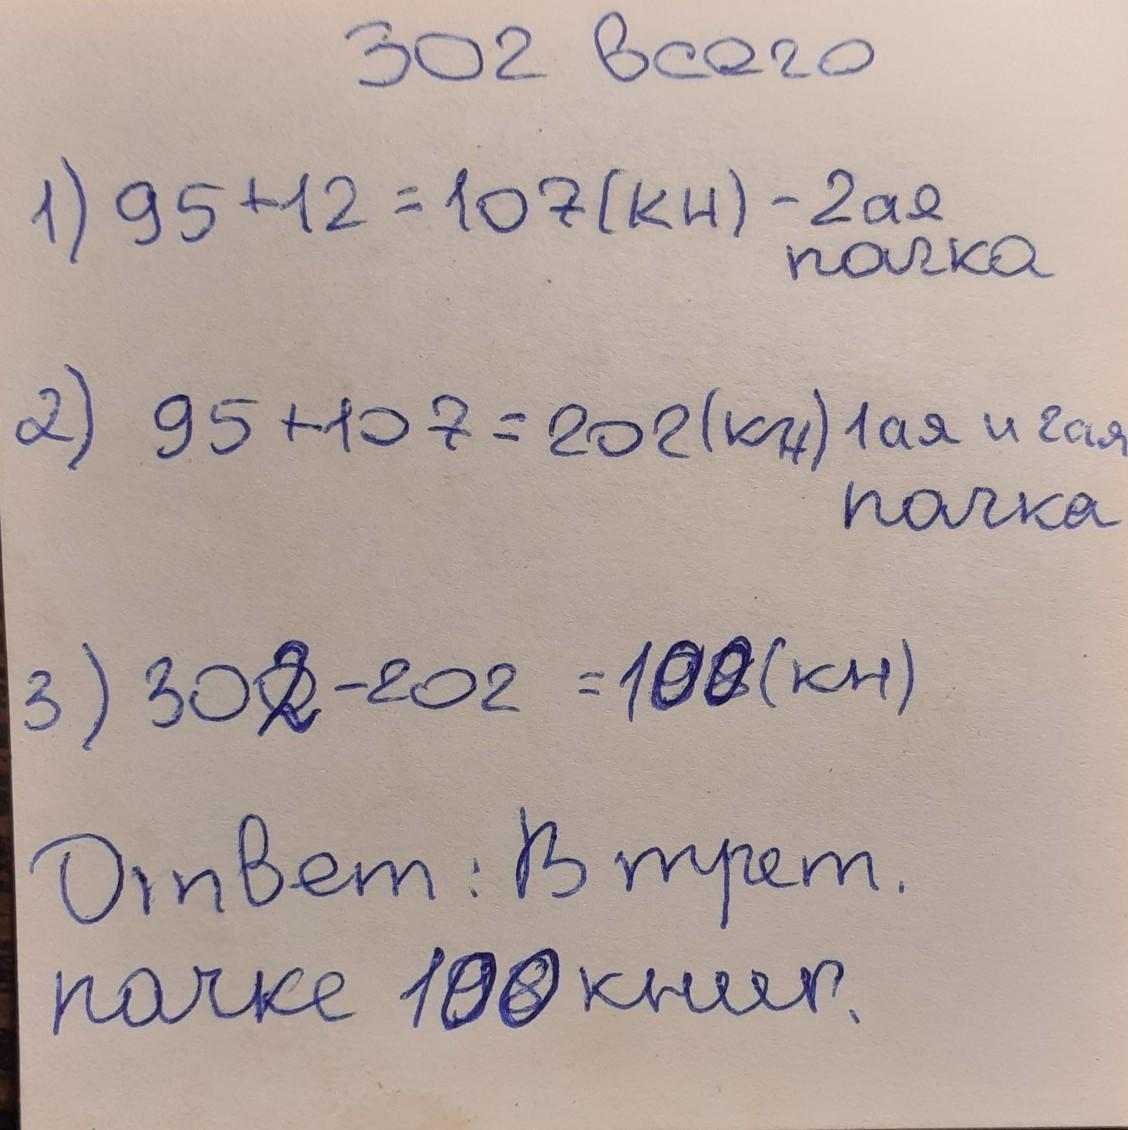 302 всего
1) 95+12=107(кн) - 2ая
пачка
2) 95+107=202(кн) 1ая и 2ая
пачка
3) 302-202 =100(кн)
Ответ: В трет.
пачке 100 книг.